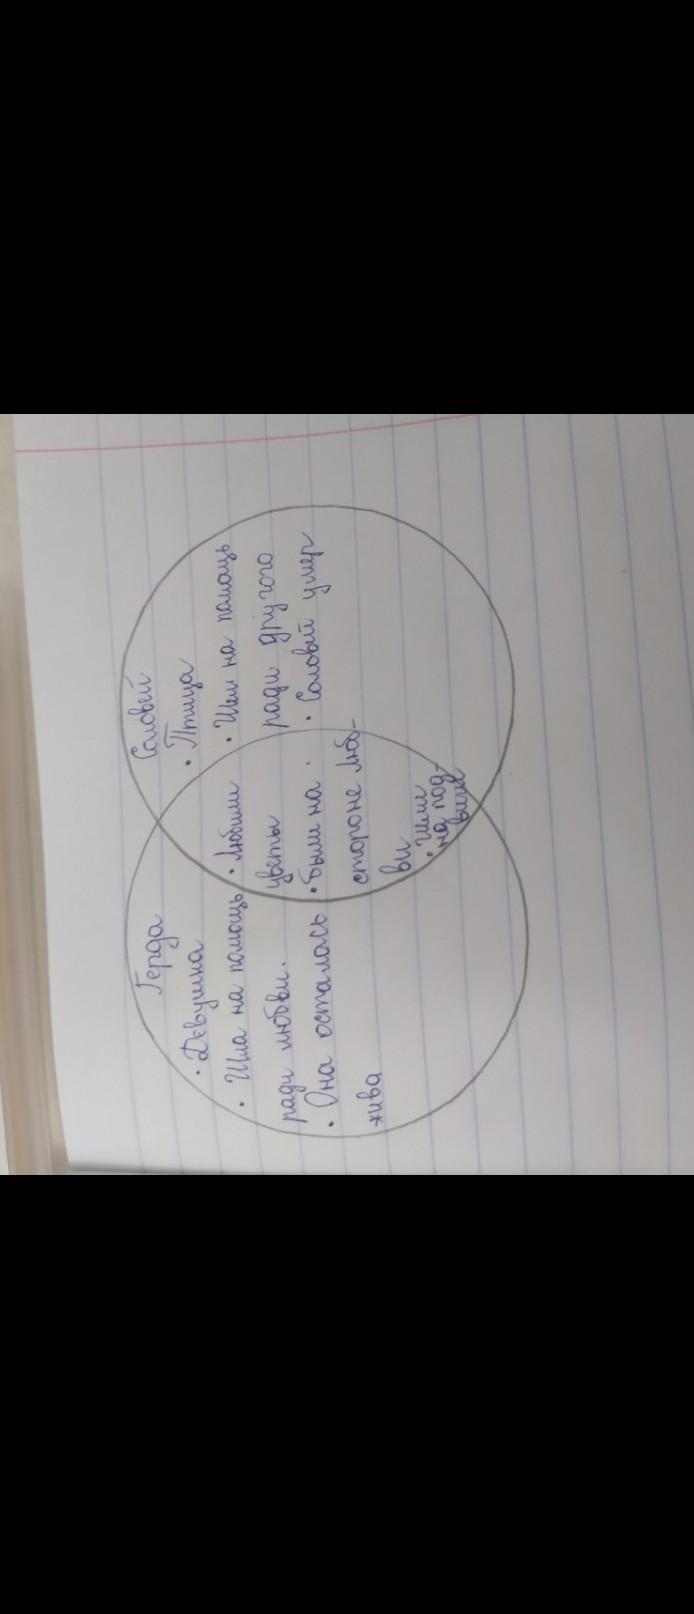 Герда
• Девушка
• Шла на помощь
ради любви.
• Она осталась
жива
• Любили
цветы
• были на
стороне люб-
ви
• Шли
на под-
виги
Соловей
• Птица
• Шел на помощь
ради другого
• Соловей умер